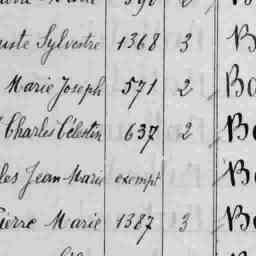 uste Sylvestre 1368 3 B
Marie Joseph 571 2 Ba
Charles Célestin 637 2 Be
les Jean-Marie exempt Be
Pierre Marie 1387 3 Be